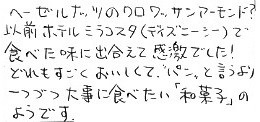 ヘーゼルナッツのクロワッサンアーモンド?
以前ホテルミラコスタ(ディズニーシー)で
食べた味に出合えて感激でした!
どれもすごくおいしくて、"パン"と言うより
一つづつ大事に食べたい「和菓子」の
ようです。